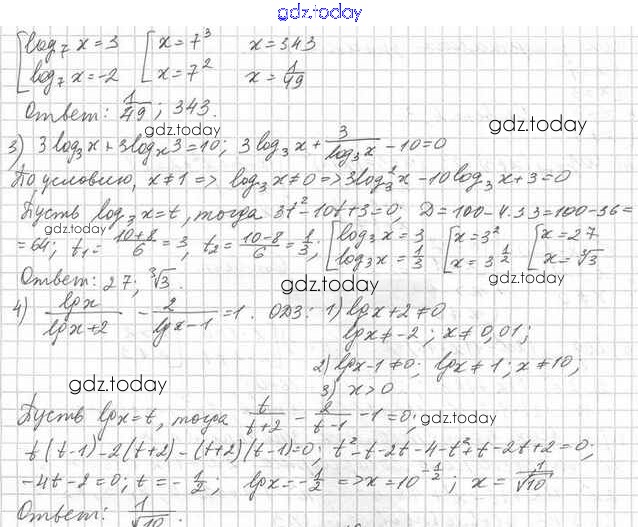 gdz.today
[log₇ x = 3   [x = 7³   x = 343
[log₇ x = -2   [x = 7²   x = 1/49
Ответ: 1/49; 343.
gdz.today
gdz.today
3) 3log₃x + 3logₓ3 = 10; 3log₃x + 3/log₃x - 10 = 0
По условию, x ≠ 1 => log₃x ≠ 0 => 3log₃²x - 10log₃x + 3 = 0
Пусть log₃x = t, тогда 3t² - 10t + 3 = 0; D = 100 - 4·3·3 = 100 - 36 =
= 64; t₁ = (10+8)/6 = 3, t₂ = (10-8)/6 = 1/3; [log₃x = 3 [x = 3² [x = 27
[log₃x = 1/3 [x = 3^(1/2) [x = ∛3
gdz.today
Ответ: 27; ∛3.
gdz.today
gdz.today
4) lgx/(lgx+2) - 2/(lgx-1) = 1. ОДЗ: 1) lgx+2 ≠ 0
lgx ≠ -2; x ≠ 0,01;
2) lgx-1 ≠ 0; lgx ≠ 1; x ≠ 10;
gdz.today
3) x > 0
Пусть lgx = t, тогда t/(t+2) - 2/(t-1) - 1 = 0;
gdz.today
t(t-1) - 2(t+2) - (t+2)(t-1) = 0; t² - t - 2t - 4 - t² + t - 2t + 2 = 0;
-4t - 2 = 0; t = -1/2; lgx = -1/2 => x = 10^(-1/2); x = 1/√10
Ответ: 1/√10.